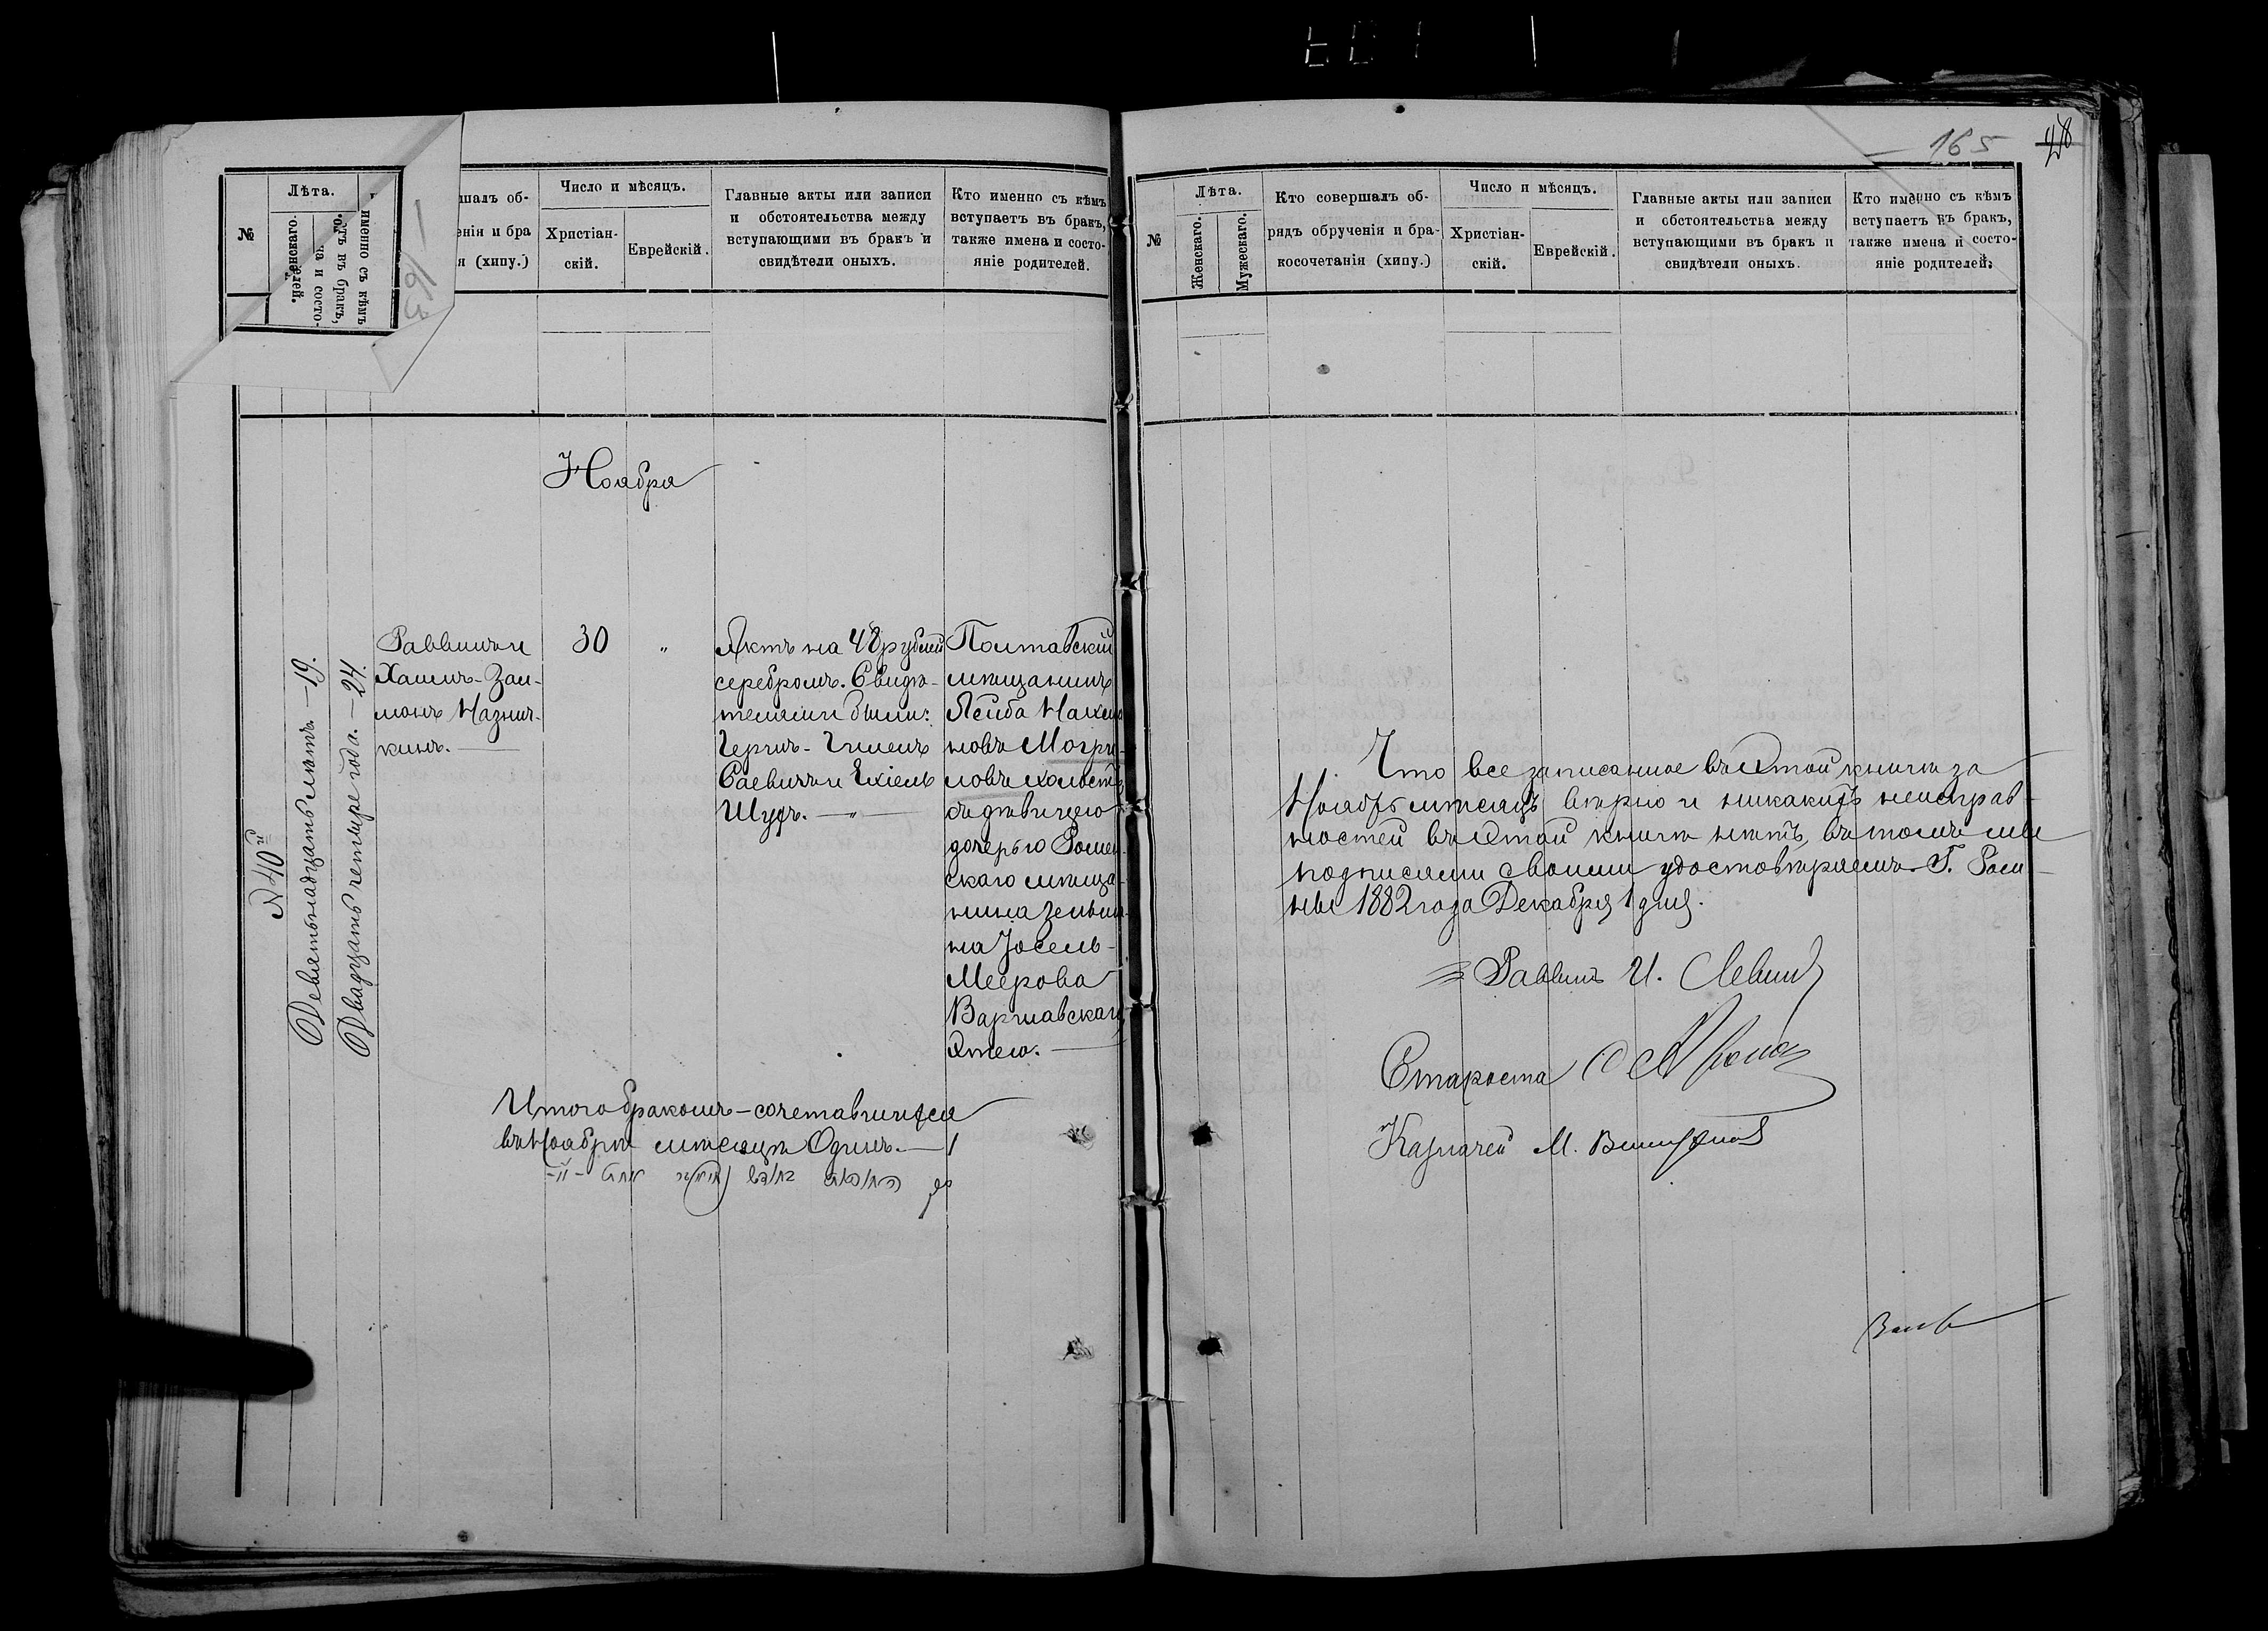 №
Лѣта.
шалъ об-
енія и бра
я (хипу.)
Число и мѣсяцъ.
Христіан-
скій.
Еврейскій.
Главные акты или записи
и обстоятельства между
вступающими въ бракъ и
свидѣтели оныхъ.
Кто именно съ кѣмъ
вступаетъ въ бракъ,
также имена и состо-
яніе родителей.
именно съ кѣмъ
ъ въ бракъ,
на и состо-
163
Ноября
№ 40й
Девятьнадцать лѣтъ — 19.
Двадцать четыре года. — 24.
Раввинъ и
Хаимъ-Зал-
монъ Мазнич-
кинъ.
30
„
Актъ на 48 рублей
серебромъ. Свидѣ-
телями были:
Гершъ-Гилелъ
Саевичъ и Ехіель
Шуфъ. — „ —
Полтавскій
мѣщанинъ
Лейба Нахи
новъ Могри-
ловъ холостъ
съ дѣвицею
дочерью Ромен-
скаго мѣща-
нина Зельма-
на Іосель-
Меерова
Варшавскаго
Этею.
Итого бракомъ-сочетавшихся
въ Ноябрѣ мѣсяцѣ Одинъ. — 1
165
№
Лѣта.
Женскаго.
Мужескаго.
Кто совершалъ об-
рядъ обрученія и бра-
косочетанія (хипу.)
Число и мѣсяцъ.
Христіан-
скій.
Еврейскій.
Главные акты или записи
и обстоятельства между
вступающими въ бракъ и
свидѣтели оныхъ.
Кто именно съ кѣмъ
вступаетъ въ бракъ,
также имена и состо-
яніе родителей.
Что все записанное въ этой книгѣ за
Ноябрь мѣсяцъ вѣрно и никакихъ неисправ-
ностей въ этой книгѣ нѣтъ, въ томъ мы
подписями своими удостовѣряемъ. Г. Ром-
ны 1882 года Декабря 1 дня.
Раввинъ И. Левинъ
Староста
Казначей М.